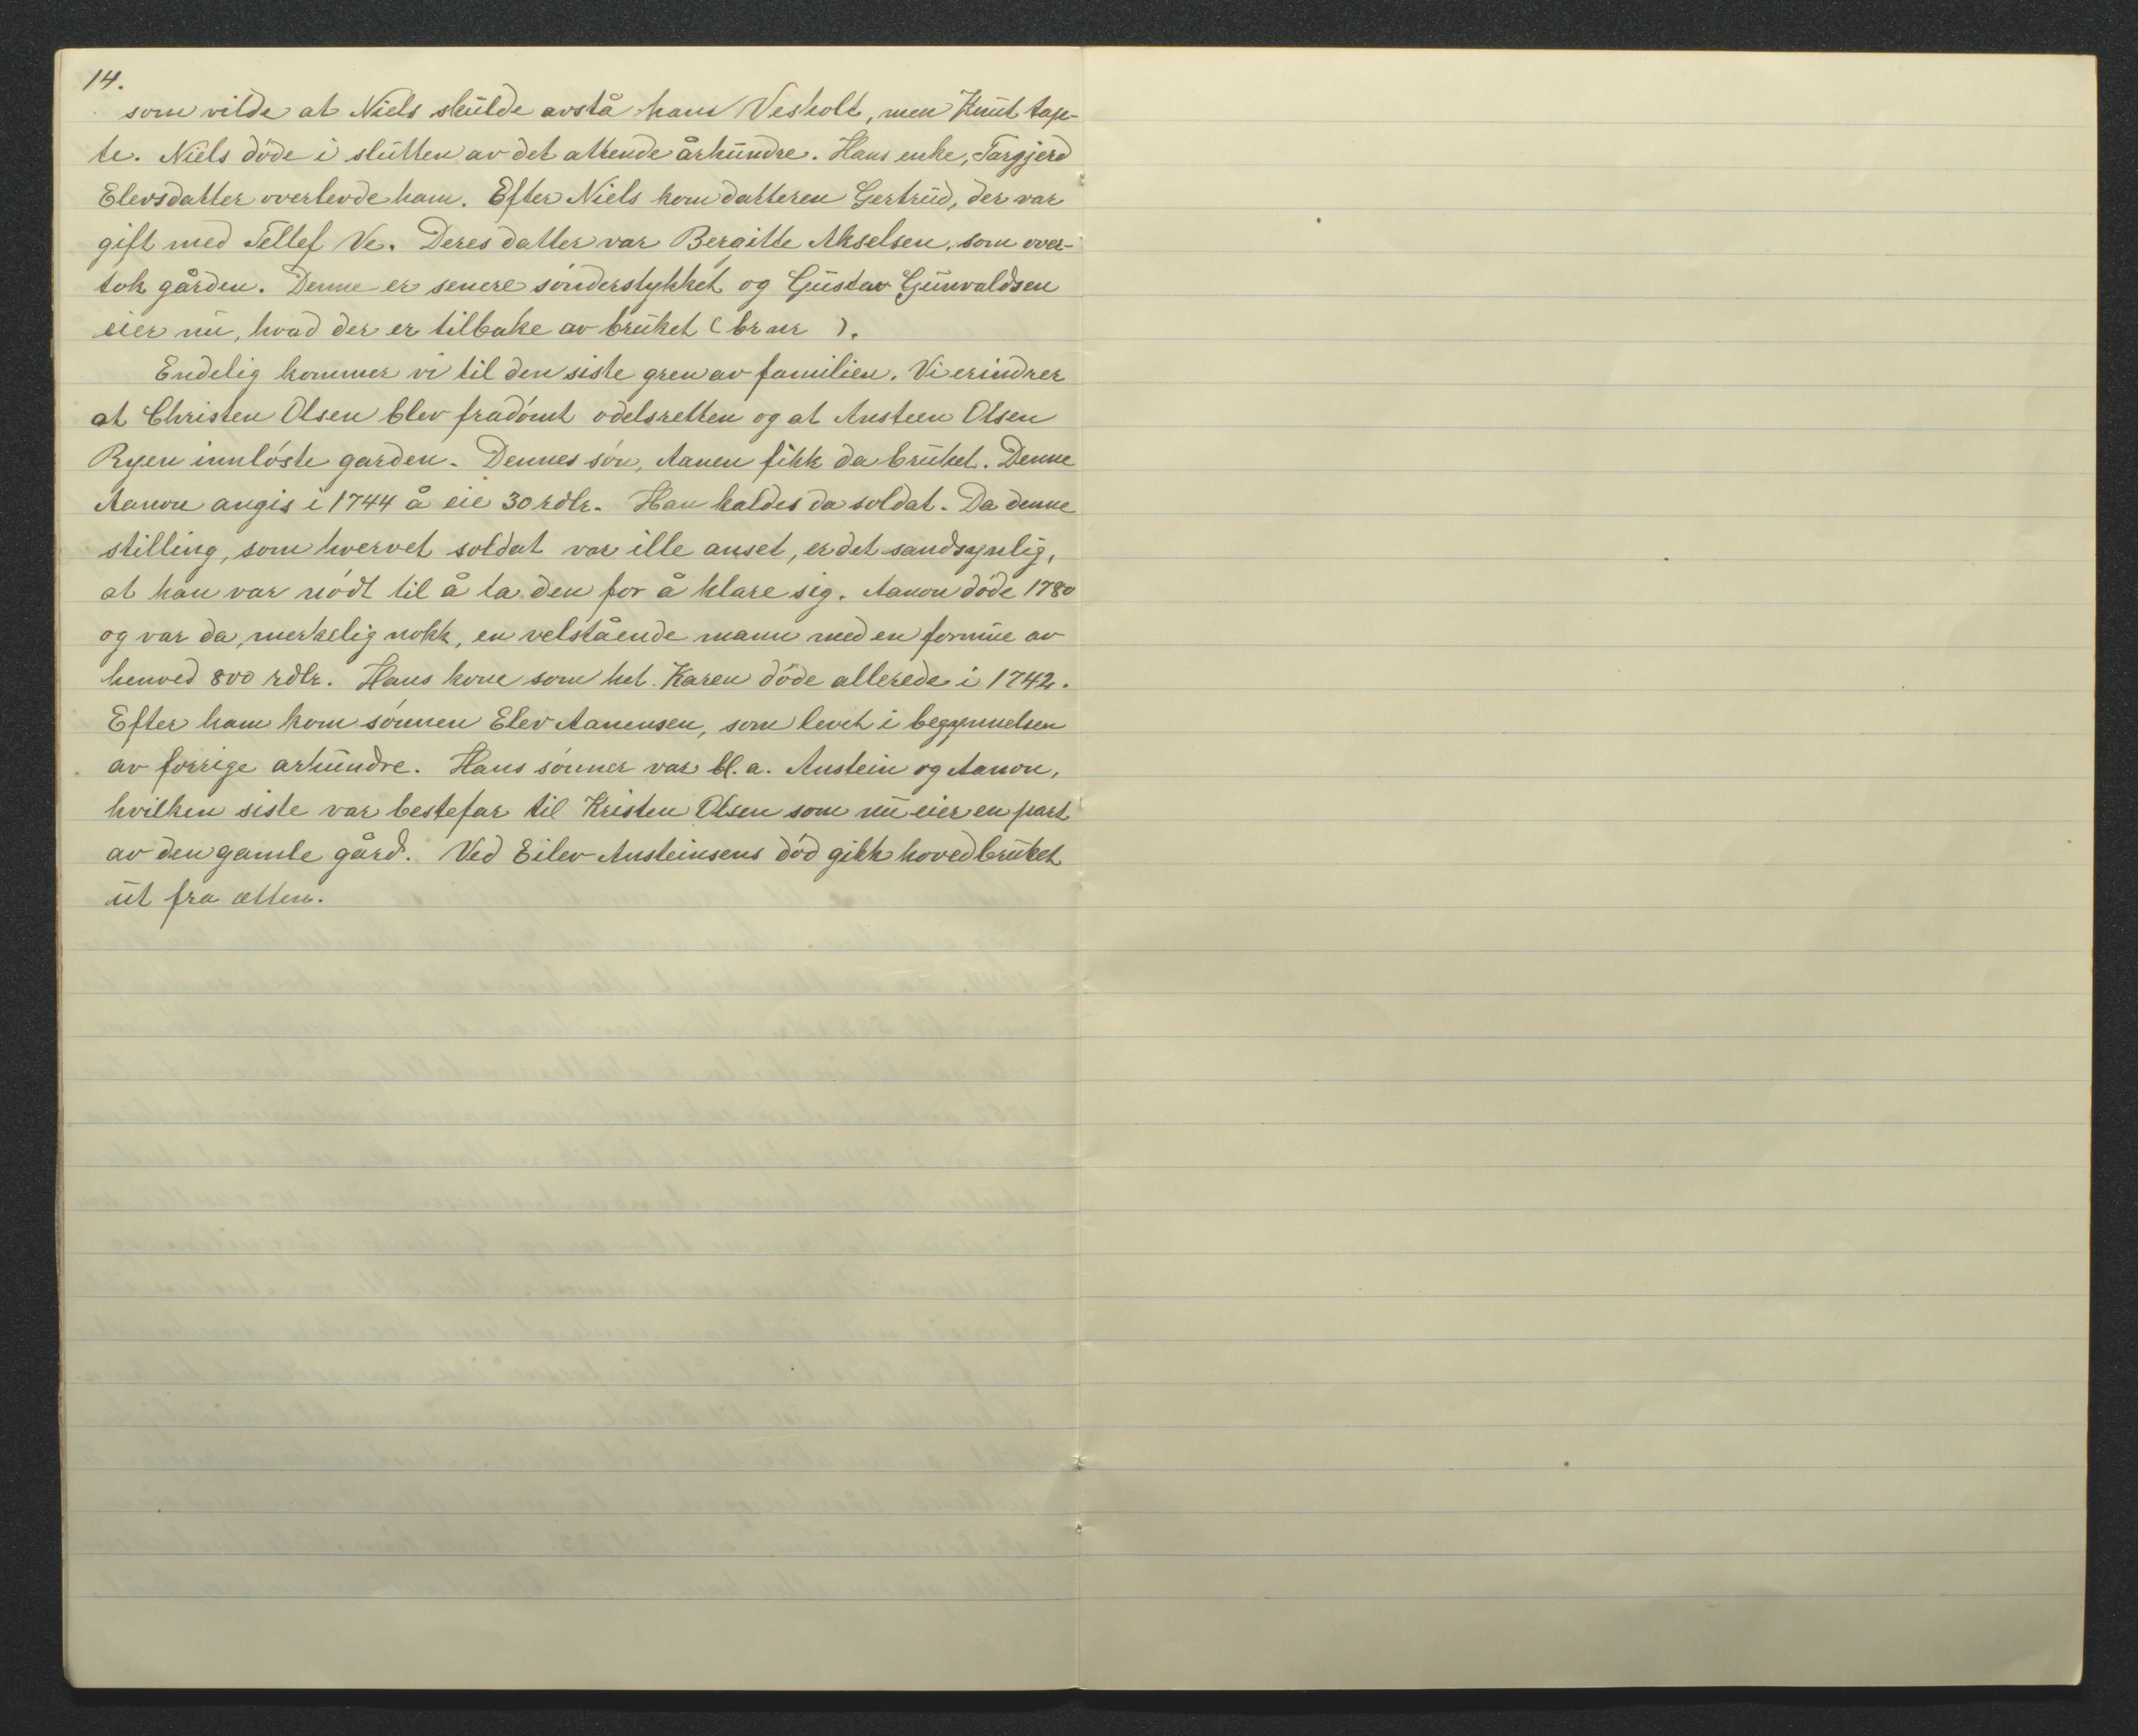 14.
som vilde at Niels skulde avstå ham Vesholt, men Knut tap-
te. Niels döde i slutten av det attende århundre. Hans enke, Targjerd
Elevsdatter overlevde ham. Efter Niels kom datteren Gertrud, der var
gift med Tellef Ve. Deres datter var Bergitte Akselsen, som over-
tok gården. Denne er senere sönderstykket og Gustav Gunvaldsen
eier nu, hvad der er tilbake av bruket (br nr ).
Endelig kommer vi til den siste gren av familien. Vi erindrer
at Christen Olsen blev fradömt odelsretten og at Austeen Olsen
Ryen innlöste garden. Dennes sön, Aanen fikk da bruket. Denne
Aanon angis i 1744 å eie 30 rdlr. Han kaldes da soldat. Da denne
stilling, som hvervet soldat var ille anset, er det sandsynlig,
at han var nödt til å ta den for å klare sig. Aanon döde 1780
og var da, merkelig nokk, en velstående mann med en formue av
henved 800 rdlr. Hans kone som het Karen döde allerede i 1742.
Efter ham kom sönnen Elev Aanensen, som levet i begynnelsen
av forrige arhundre. Hans sönner var bl. a. Austein og Aanon,
hvilken siste var bestefar til Kristen Olsen som nu eier en part
av den gamle gård. Ved Eilev Austeinsens död gikk hovedbruket
ut fra ætten.